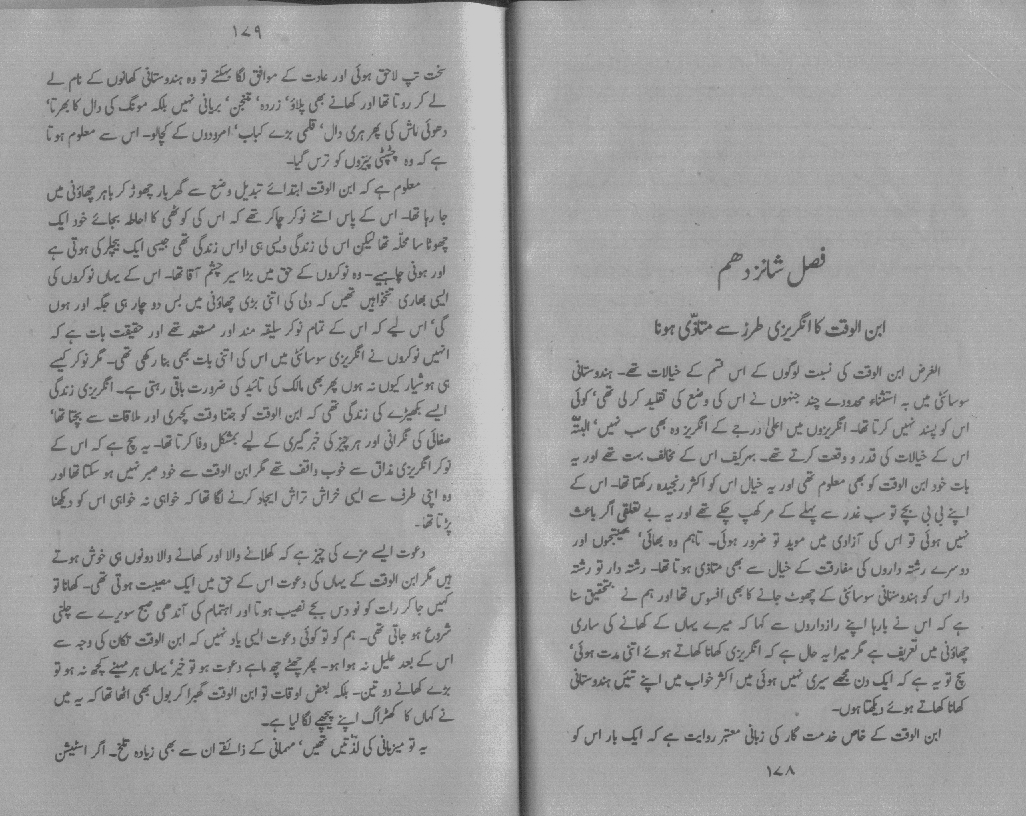 فصل شانزدهم
ابن الوقت کا انگریزی طرز سے متاذّی ہونا
الغرض ابن الوقت کی نسبت لوگوں کے اس قسم کے خیالات تھے۔ ہندوستانی
سوسائٹی میں بہ استثناء محدودے چند جنہوں نے اس کی وضع کی تقلید کر لی تھی‘ کوئی
اس کو پسند نہیں کرتا تھا۔ انگریزوں میں اعلیٰ درجے کے انگریز وہ بھی سب نہیں‘ البتّہ
اس کے خیالات کی قدر و وقعت کرتے تھے۔ بہرکیف اس کے مخالف بہت تھے اور یہ
بات خود ابن الوقت کو بھی معلوم تھی اور یہ خیال اس کو اکثر رنجیدہ رکھتا تھا۔ اس کے
اپنے بی بی بچے تو سب غدر سے پہلے کے مر کھپ چکے تھے اور یہ بے تعلقی اگر باعث
نہیں ہوئی تو اس کی آزادی میں موید تو ضرور ہوئی۔ تاہم وہ بھائی‘ بھتیجوں اور
دوسرے رشتہ داروں کی مفارقت کے خیال سے بھی متاذی ہوتا تھا۔ رشتہ دار تو رشتہ
دار اس کو ہندوستانی سوسائٹی کے چھوٹ جانے کا بھی افسوس تھا اور ہم نے بتحقیق سنا
ہے کہ اس نے بارہا اپنے رازداروں سے کہا کہ میرے یہاں کے کھانے کی ساری
چھاؤنی میں تعریف ہے مگر میرا یہ حال ہے کہ انگریزی کھانا کھاتے ہوئے اتنی مدت ہوئی‘
سچ تو یہ ہے کہ ایک دن مجھے سیری نہیں ہوئی میں اکثر خواب میں اپنے تئیں ہندوستانی
کھانا کھاتے ہوئے دیکھتا ہوں۔
ابن الوقت کے خاص خدمت گار کی زبانی معتبر روایت ہے کہ ایک بار اس کو
۱۷۸
۱۷۹
سخت تپ لاحق ہوئی اور عادت کے موافق لگا بہکنے تو وہ ہندوستانی کھانوں کے نام لے
لے کر روتا تھا اور کھانے بھی پلاؤ‘ زردہ‘ متنجن‘ بریانی نہیں بلکہ مونگ کی دال کا بھرتا‘
دھوئی ماش کی پھر ہری دال‘ قلمی بڑے کباب‘ امرودوں کے کچالو۔ اس سے معلوم ہوتا
ہے کہ وہ چٹپٹی چیزوں کو ترس گیا۔
معلوم ہے کہ ابن الوقت ابتدائے تبدیل وضع سے گھر بار چھوڑ کر باہر چھاؤنی میں
جا رہا تھا۔ اس کے پاس اتنے نوکر چاکر تھے کہ اس کی کوٹھی کا احاطہ بجائے خود ایک
چھوٹا سا محلّہ تھا لیکن اس کی زندگی ویسی ہی اداس زندگی تھی جیسی ایک بیچلر کی ہوتی ہے
اور ہونی چاہیے۔ وہ نوکروں کے حق میں بڑا سیر چشم آقا تھا۔ اس کے یہاں نوکروں کی
ایسی بھاری تنخواہیں تھیں کہ دلی کی اتنی بڑی چھاؤنی میں بس دو چار ہی جگہ اور ہوں
گی‘ اس لیے کہ اس کے تمام نوکر سلیقہ مند اور مستعد تھے اور حقیقت بات ہے کہ
انہیں نوکروں نے انگریزی سوسائٹی میں اس کی اتنی بات بھی بنا رکھی تھی۔ مگر نوکر کیسے
ہی ہوشیار کیوں نہ ہوں پھر بھی مالک کی تائید کی ضرورت باقی رہتی ہے۔ انگریزی زندگی
ایسے بکھیڑے کی زندگی تھی کہ ابن الوقت کو جتنا وقت کچہری اور ملاقات سے بچتا تھا‘
صفائی کی نگرانی اور ہر چیز کی خبر گیری کے لیے بمشکل وفا کرتا تھا۔ یہ سچ ہے کہ اس کے
نوکر انگریزی مذاق سے خوب واقف تھے مگر ابن الوقت سے خود صبر نہیں ہو سکتا تھا اور
وہ اپنی طرف سے ایسی خراش تراش ایجاد کرنے لگا تھا کہ خواہی نہ خواہی اس کو دیکھنا
پڑتا تھا۔
دعوت ایسے مزے کی چیز ہے کہ کھلانے والا اور کھانے والا دونوں ہی خوش ہوتے
ہیں مگر ابن الوقت کے یہاں کی دعوت اس کے حق میں ایک مصیبت ہوتی تھی۔ کھانا تو
کہیں جا کر رات کو نو دس بجے نصیب ہوتا اور اہتمام کی آندھی صبح سویرے سے چلنی
شروع ہو جاتی تھی۔ ہم کو تو کوئی دعوت ایسی یاد نہیں کہ ابن الوقت تکان کی وجہ سے
اس کے بعد علیل نہ ہوا ہو۔ پھر چھٹے چھ ماہے دعوت ہو تو خیر‘ یہاں ہر مہینے کچھ نہ ہو تو
بڑے کھانے دو تین۔ بلکہ بعض اوقات تو ابن الوقت گھبرا کر بول بھی اٹھا تھا کہ یہ میں
نے کہاں کا کھڑاگ اپنے پیچھے لگا لیا ہے۔
یہ تو میزبانی کی لذّتیں تھیں‘ مہمانی کے ذائقے ان سے بھی زیادہ تلخ۔ اگر اسٹیشن